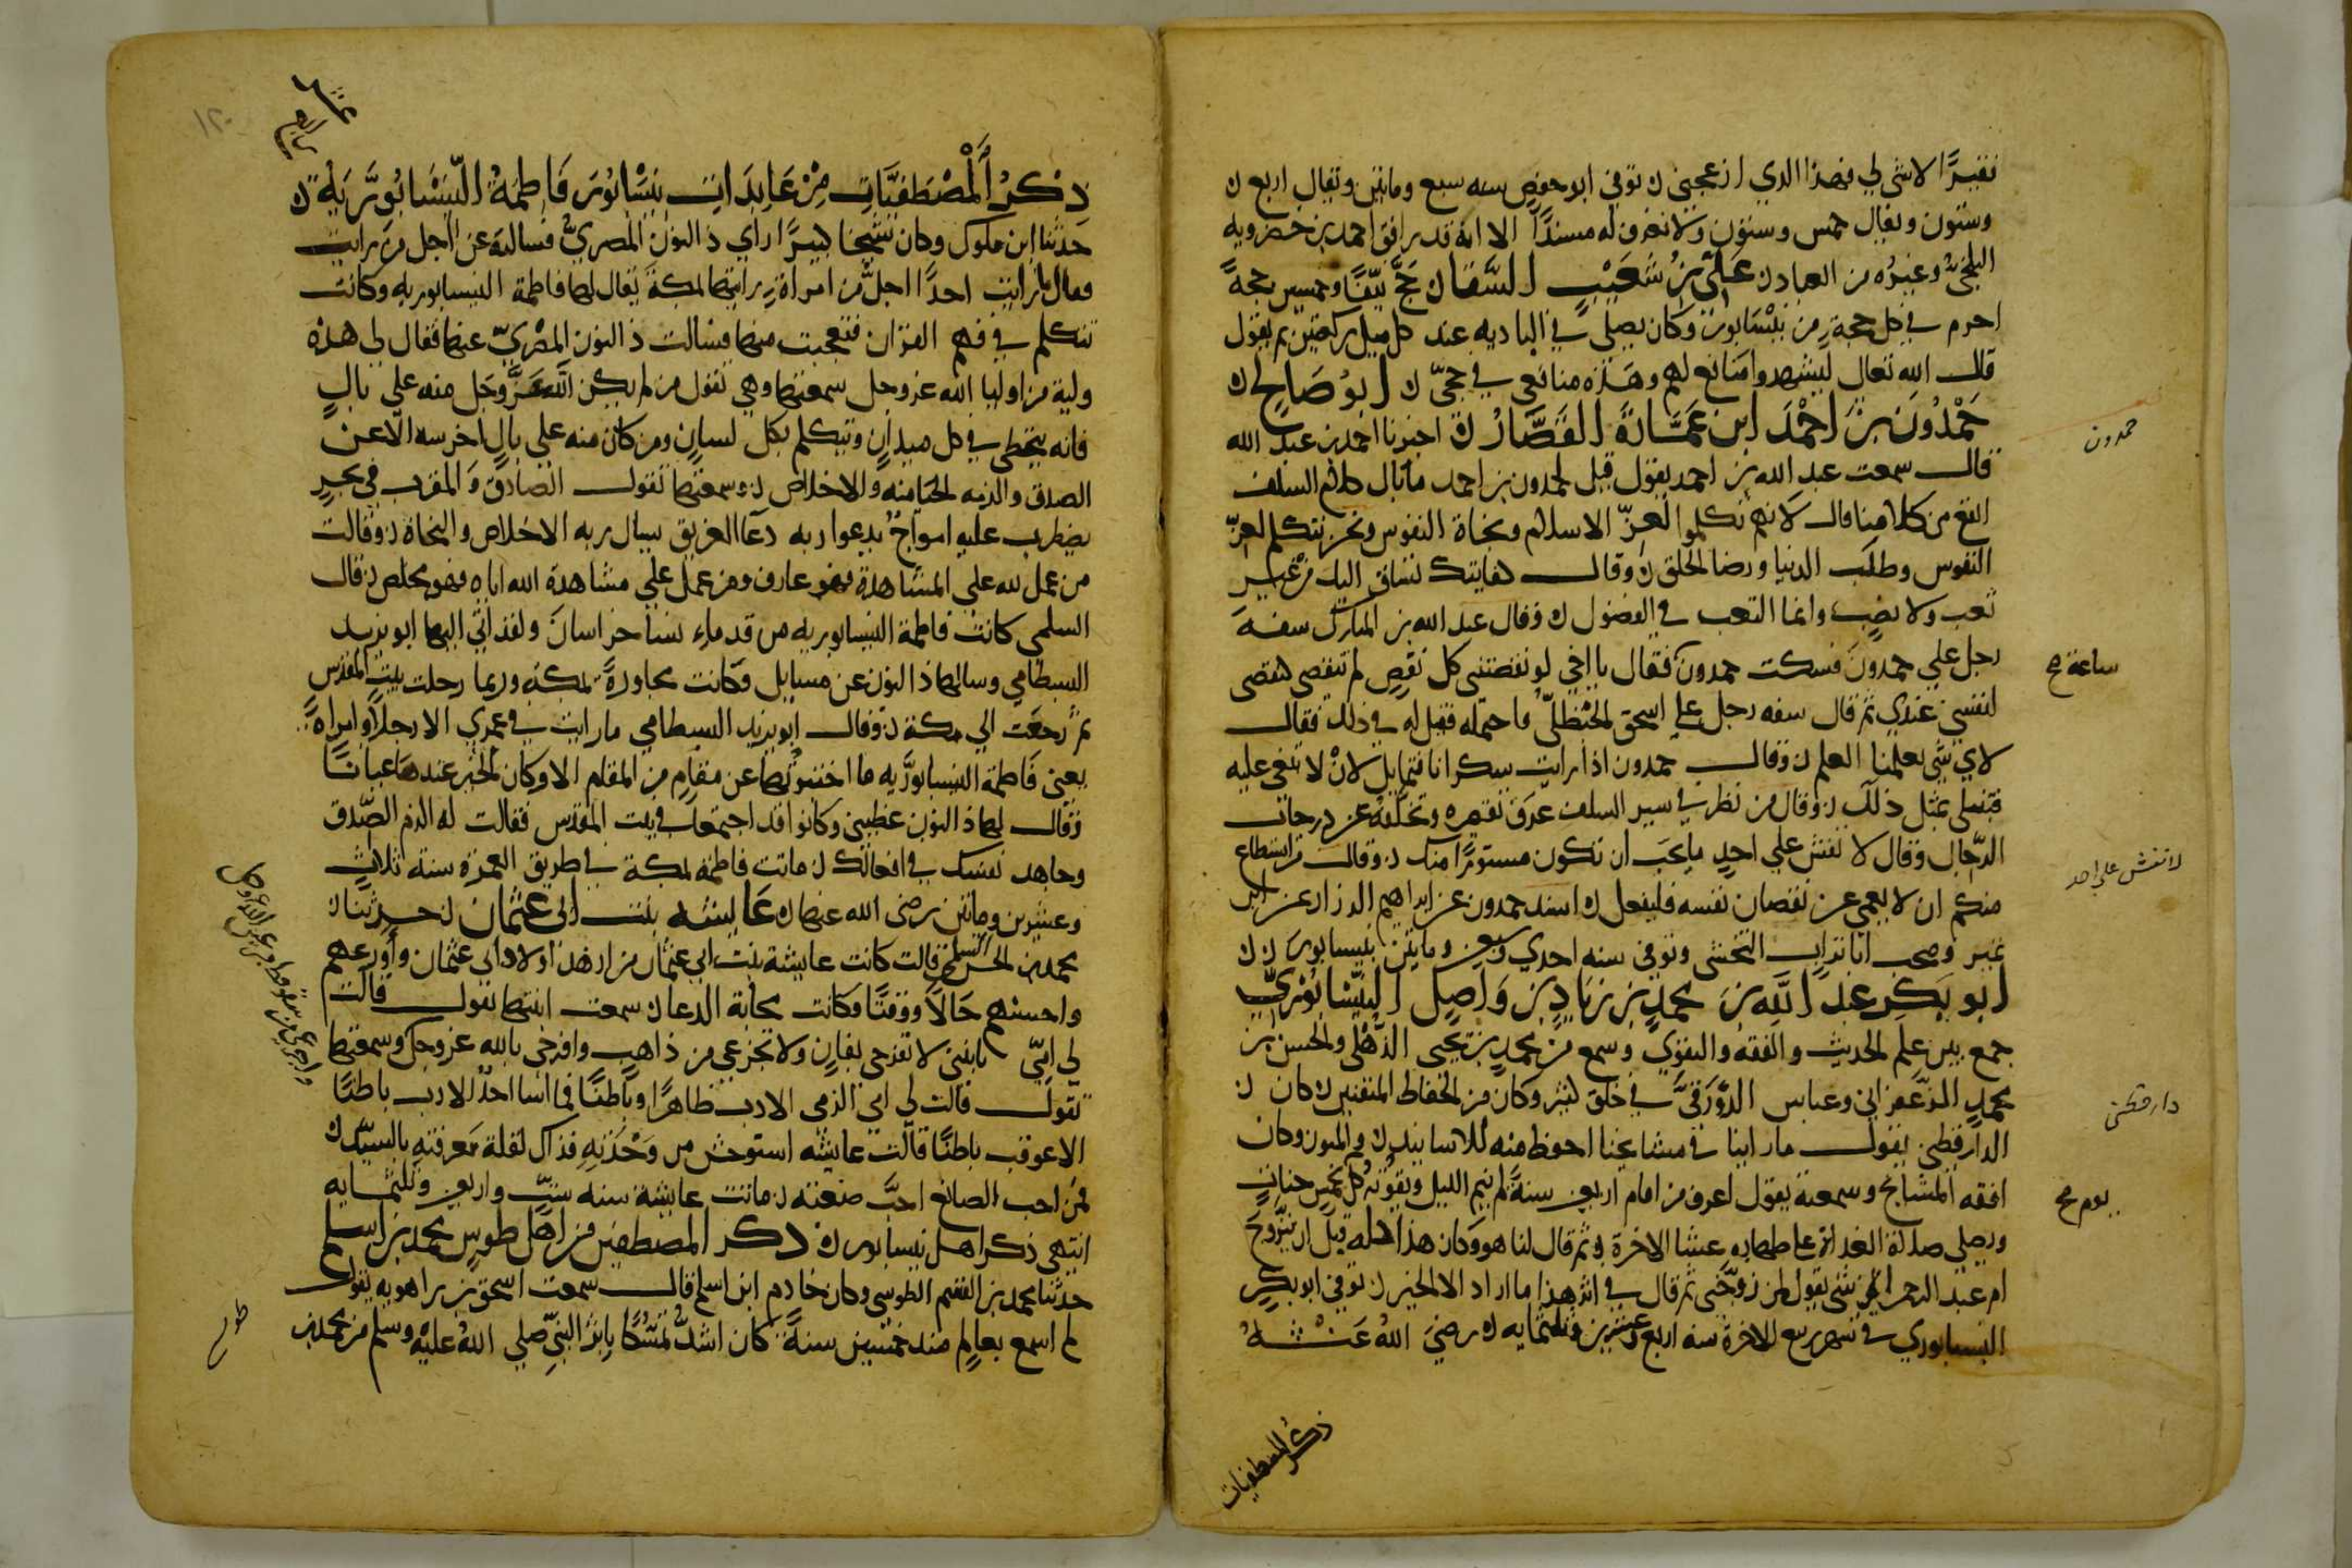 فقيرًا لا شي لي فهذا الذي ازعجني ں توفي ابو حفص سنه سبع وماتين ويقال اربع ں
وستون ويقال خمس وستون ولا نعرف له مسندًا الا انه قد رافق احمد بن خضرويه
البلخي وغيره من العباد ں علي بن شعيب السقا ں حج نيفًا وخمسين حجة
احرم في كل حجة من نيسابور وكان يصلي في الباديه عند كل ميل ركعتين ثم يقول
قال الله تعالي ليشهدوا منافع لهم وهذه منافعي في حجي ں ابو صالح ں
حمدون بن احمد ابن عمارة القصار ں اخبرنا احمد بن عبد الله
قال سمعت عبد الله بن احمد يقول قيل لحمدون بن احمد ما بال كلام السلف
انفع من كلامنا قال لانهم تكلموا لعزّ الاسلام ونجاة النفوس ونحن نتكلم لعزّ
النفوس وطلب الدنيا ورضا الخلق ں وقال كفايتك تساق اليك من غير
تعب ولا نصب وانما التعب في الفضول ں وقال عبد الله بن المبارك سفه
رجل علي حمدون فسكت حمدون فقال يا اخي لو نقصتني كل نقص لم تنقصني كنقصي
لنفسي عندي ثم قال سفه رجل علي اسحق الحنظليّ فاحتمله فقيل له في ذلك فقال
لاي شي تعلمنا العلم ں وقال حمدون اذا رايت سكرانا فتمايل لان لا تنعي عليه
فتبتلي بمثل ذلك ں وقال من نظر في سير السلف عرف تقصيره وتخلفه عن درجات
الرجال وقال لا تفش علي احد ما تحب ان تكون مستورًا منك ں وقال من استطاع
منكم ان لا يعمي عن نقصان نفسه فليفعل ں اسند حمدون عن ابراهيم الزراد عن ابن
نمير وصحب ابا تراب النخشبي وتوفي سنه احدي وسبعين ومايتين بنيسابور ں ں
ابو بكر عبد الله بن محمد بن زياد بن واصل النيسابوري
جمع بين علم الحديث والفقه والتقوي وسمع من محمد بن يحيي الذهلي والحسن بن
محمد الزعفراني وعباس الدوري في خلق كثير وكان من الحفاظ المتقنين ں كان ں
الدارقطني يقول ما راينا في مشايخنا احفظ منه للاسانيد ں والمتون وكان
افقه المشايخ وسمعته يقول اعرف من اقام اربعين سنةً لم ينم الليل ويتقوت كل يوم بخمس حبات
ويصلي صلاة الغداة علي طهارة عشا الاخرة ں ثم قال لنا هو وكان هذا كله قبل ان يتزوج
ام عبد الرحمن ايش يقول لمن زوجني ثم قال في اثر هذا ما اراد الا الخير ں توفي ابو بكر
النيسابوري في شهر ربيع الاخرة سنه اربع وعشرين وثلثمايه ں رضي الله عنه
حمدون
ساعة صح
لا تفش علي احد
دار قطني
يوم صح
ذكر المصطفيات
١٢٠
ذكر المصطفيات من عابدات نيسابور فاطمة النيسابوريه ں
حدثنا ابن ملوك وكان شيخا كبيرًا راي ذا النون المصري فسالته عن اجل من رايت
فقال ما رايت احدًا اجل من امراة رايتها بمكة يقال لها فاطمة النيسابوريه وكانت
تتكلم في فهم القران فتعجبت منها فسالت ذا النون المصري عنها فقال لي هذه
ولية من اوليا الله عز وجل سمعتها وهي تقول من لم يكن الله عز وجل منه علي بال
فانه يتخطي في كل ميدان ويتكلم بكل لسان ومن كان منه علي بال اخرسه الا عن
الصدق والزمه الحيا منه والاخلاص ں وسمعتها تقول الصادق والمقرب في بحر
يضطرب عليه امواج يدعوا ربه دعا الغريق يسال ربه الاخلاص والنجاة ں وقالت
من عمل لله علي المشاهدة فهو عارف ومن عمل علي مشاهدة الله اياه فهو مخلص ں قال
السلمي كانت فاطمة النيسابوريه من قدماء نسا خراسان ولقد اتي اليها ابو يزيد
البسطامي وسالها ذا النون عن مسايل وكانت مجاورة بمكه وربما رحلت بيت المقدس
ثم رجعت الي مكة ں وقال ابو يزيد البسطامي ما رايت في عمري الا رجلًا وامراة
يعني فاطمة النيسابوريه ما اخبرتها عن مقام من المقام الا وكان الخبر عندها عيانًا
وقال لها ذا النون عظيني وكانوا قد اجتمعا في بيت المقدس فقالت له الزم الصدق
وجاهد نفسك في افعالك ں ماتت فاطمه بمكة في طريق العمرة سنة ثلاث
وعشرين وماتين رضي الله عنها ں عايشه بنت ابي عثمان ں حدثنا ں
محمد بن الحسن السلمي قالت كانت عايشة بنت ابي عثمان من ازهد اولاد ابي عثمان واورعهم
واحسنهم حالًا ووقتًا وكانت مجابة الدعا ں سمعت ابنتها تقول قالت
لي امي يا بنتي لا تفرحي بفان ولا تجزعي من ذاهب وافرحي بالله عز وجل وسمعتها
تقول قالت لي امي الزمي الادب ظاهرًا وباطنًا فما اسا احدٌ الادب باطنًا
الا عوقب باطنًا قالت عايشه استوحش من وحدته فذاك لقلة معرفته بالسيد ں
فمن احب الصانع احب صنعته ں ماتت عايشة سنه ست واربعين وثلثمايه
انتهي ذكر اهل نيسابور ں ذكر المصطفين من اهل طوس محمد بن اسلم
حدثنا محمد بن القسم الطوسي وكان خادم ابن اسلم قال سمعت اسحق بن راهويه يقول
لم اسمع بعالم منذ خمسين سنةً كان اشد تمسكًا باثر النبي صلي الله عليه وسلم من محمد بن